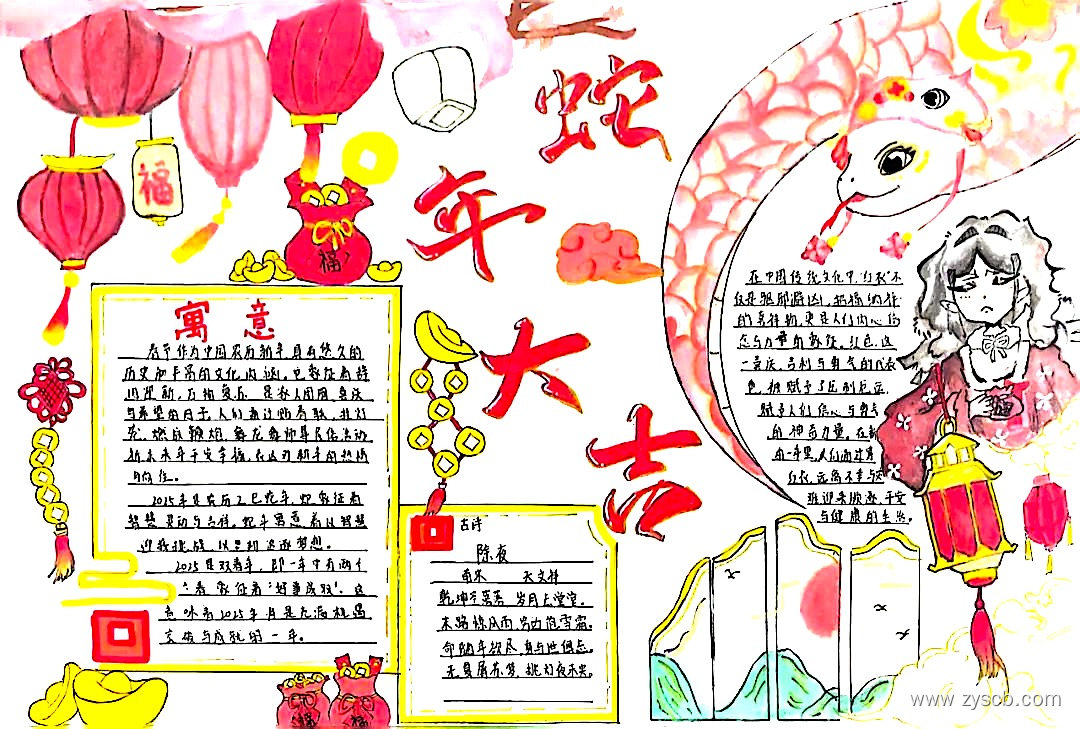 蛇年大吉
福
福
寓意
春节作为中国农历新年,具有悠久的
历史和丰富的文化内涵。它象征着辞
旧迎新,万物复苏,是家人团圆,喜庆
与希望的日子,人们通过贴春联,挂灯
笼,燃放鞭炮,舞龙舞狮等民俗活动,
祈求来年平安幸福,表达对新年的热情
与向往。
2025年是农历乙巳蛇年,蛇象征着
智慧灵动与吉祥。蛇年寓意着以智慧
迎接挑战,以灵动追逐梦想。
2025是双春年,即一年中有两个
春,象征着"好事成双"。这
意味着2025年月是充满机遇
交收与成就的一年。
古诗
除夜
南宋 天文祥
乾坤空落落,岁月去堂堂。
末路惊风雨,穷边饱雪霜。
命随年欲尽,身与世俱忘。
无复屠苏梦,挑灯夜未央。
在中国传统文化中,"红衣"不
仅是驱邪避凶,招福纳祥
的吉祥物,更是人们内心信
念与力量的象征。红色,这
一喜庆、吉利与勇气的代表
色,被赋予了
赋予人们信心与勇气
的神奇力量。在新
的一年里,人们通过穿
红衣,远离不幸与
迎来顺遂,平安
与健康的生活。
福
福
www.zyscb.com